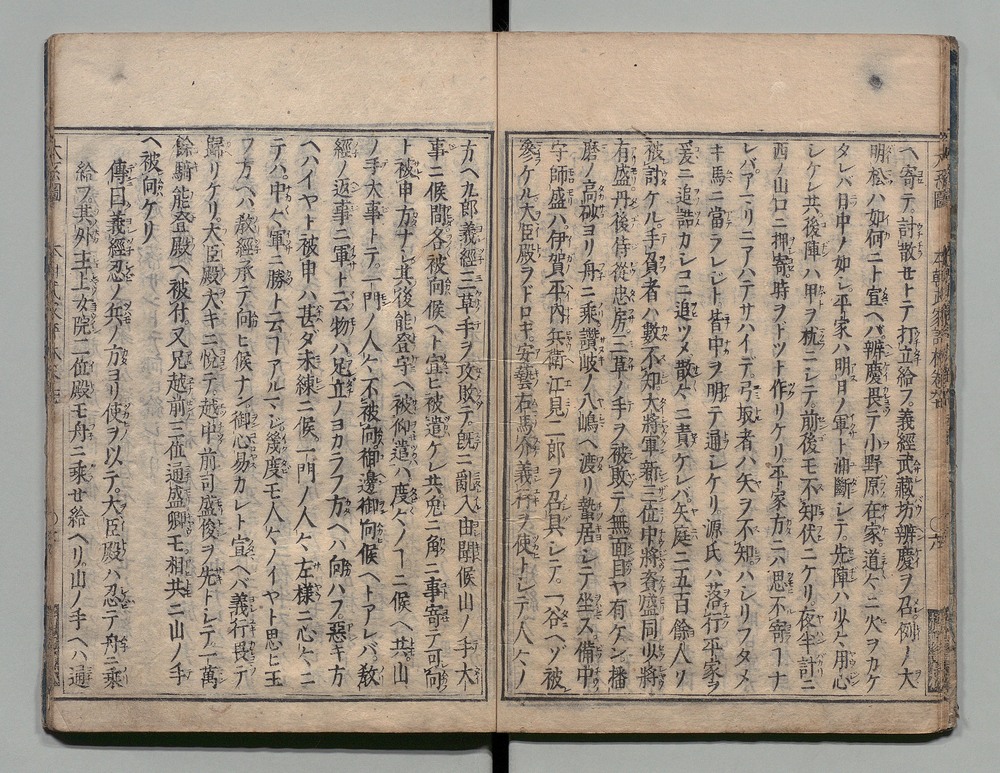 ヘ寄テ討散セトテ打立給フ。義經武藏坊辨慶ヲ召。例ノ大
明松ハ如何ニト宣ヘバ辨慶畏テ小野原在家道々ニ火ヲカケ
タレバ月中ノ如シ平家ハ明月ノ軍ト油斷シテ。先陣ハ少々用心
シケレ共後陣ハ甲ヲ枕ニシテ前後モ不知伏ニケリ夜半計ニ
西ノ山口ニ押寄時ヲドツト作リケリ。平家方ニハ思不寄ヿナ
レバアマリニアハテサハイデ弓取者ハ矢ヲ不知。ハシリフタメ
キ馬ニ當ラレジト皆中ヲ明テ通シケリ。源氏ハ落行平家ヲ
爰ニ追詰カシコニ追ツメ散々ニ責ケレバ矢庭ニ五百餘人ソ
被討ケル。手負者ハ數不知大將軍新三位中將資盛同少將
有盛丹後侍從忠房。三草ノ手ヲ被敗テ。無面目ヤ有ケン。播
磨ノ高砂ヨリ舟ニ乘讚岐ノ八嶋ヘ渡リ蟄居シテ坐ス備中
守師盛ハ。伊賀平内兵衛江見二郎ヲ召具シテ。一谷ヘゾ被
參ケル大臣殿ヲドロキ。安藝右馬介義行ヲ使トシテ人々ノ
方ヘ九郎義經三草手ヲ攻敗テ。旣ニ亂入由聞候山ノ手大
事ニ候間各被向候ヘト宣ヒ被遣ケレ共兎ニ角ニ事寄テ可向
ト被申方ナシ其後能登守ヘ被仰遣ハ度々ノヿニ候ヘ共。山
ノ手大事トテ。一門ノ人々不被向御邊御向候ヘトアレバ敎
經ノ返事ニ軍ト云物ハ足立ノヨカラフ方ヘハ向ハフ惡キ方
ヘハイヤト被申ハ甚ダ未練ニ候一門ノ人々左樣ニ心々ニ
テハ。中々軍ニ勝ト云フアルマシ幾度モ人々ノイヤト思ヒ玉
ワ方ヘハ敎經承テ向ヒ候ナン御心易カレト宣ヘバ義行畏テ
歸リケリ。大臣殿大キニ悅テ越中前司盛俊ヲ先トシテ一萬
餘騎能登殿ヘ被付。又兄越前三位通盛卿モ。相共ニ山ノ手
ヘ被向ケリ
傳曰義經忍ノ兵ノ方ヨリ使ヲ以テ。大臣殿ハ忍テ舟ニ乘
給フ。其外主上女院二位殿モ舟ニ乘セ給ヘリ。山ノ手ヘハ通